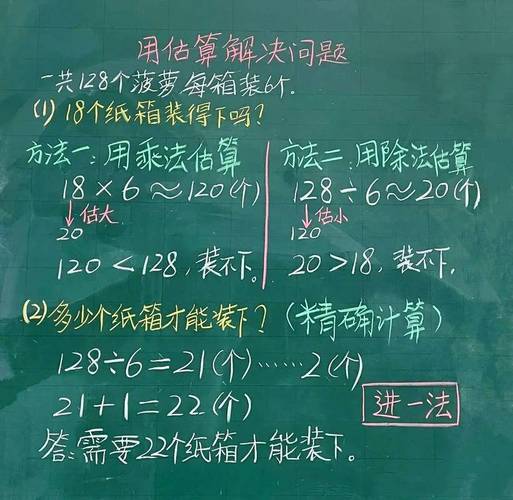 用估算解决问题
一共128个菠萝,每箱装6个.
(1) 18个纸箱装得下吗?
方法一:用乘法估算
18×6≈120(个)
↓估大
20
120<128,装不下。
方法二:用除法估算
128÷6≈20(个)
↓估小
120
20>18,装不下.
(2)多少个纸箱才能装下?(精确计算)
128÷6=21(个)……2(个)
21+1=22(个)
进一法
答:需要22个纸箱才能装下。